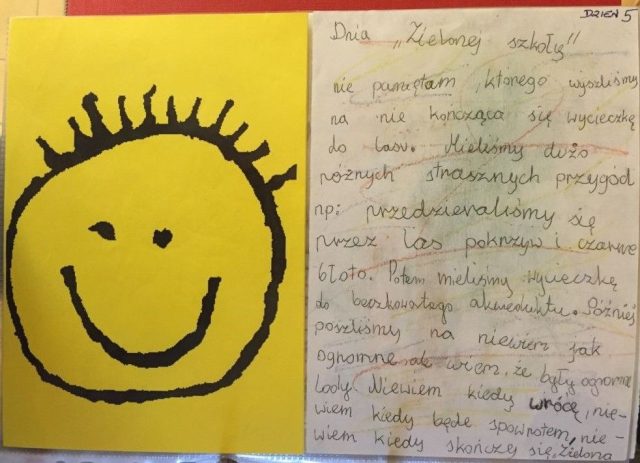 DZIEŃ 5
Dnia „Zielonej szkoły"
nie pamiętam którego wyszliśmy
na nie kończąca się wycieczkę
do lasu. Mieliśmy dużo
różnych strasznych przygód
np: przedzieraliśmy się
przez las pokrzyw i czarne
błoto. Potem mieliśmy wycieczkę
do beczkowatego akweduktu. Później
poszliśmy na niewiem jak
ogromne ale wiem, że były ogromne
lody. Niewiem kiedy wrócę, nie-
wiem kiedy będe spowrotem, nie-
wiem kiedy skończej się „Zielona